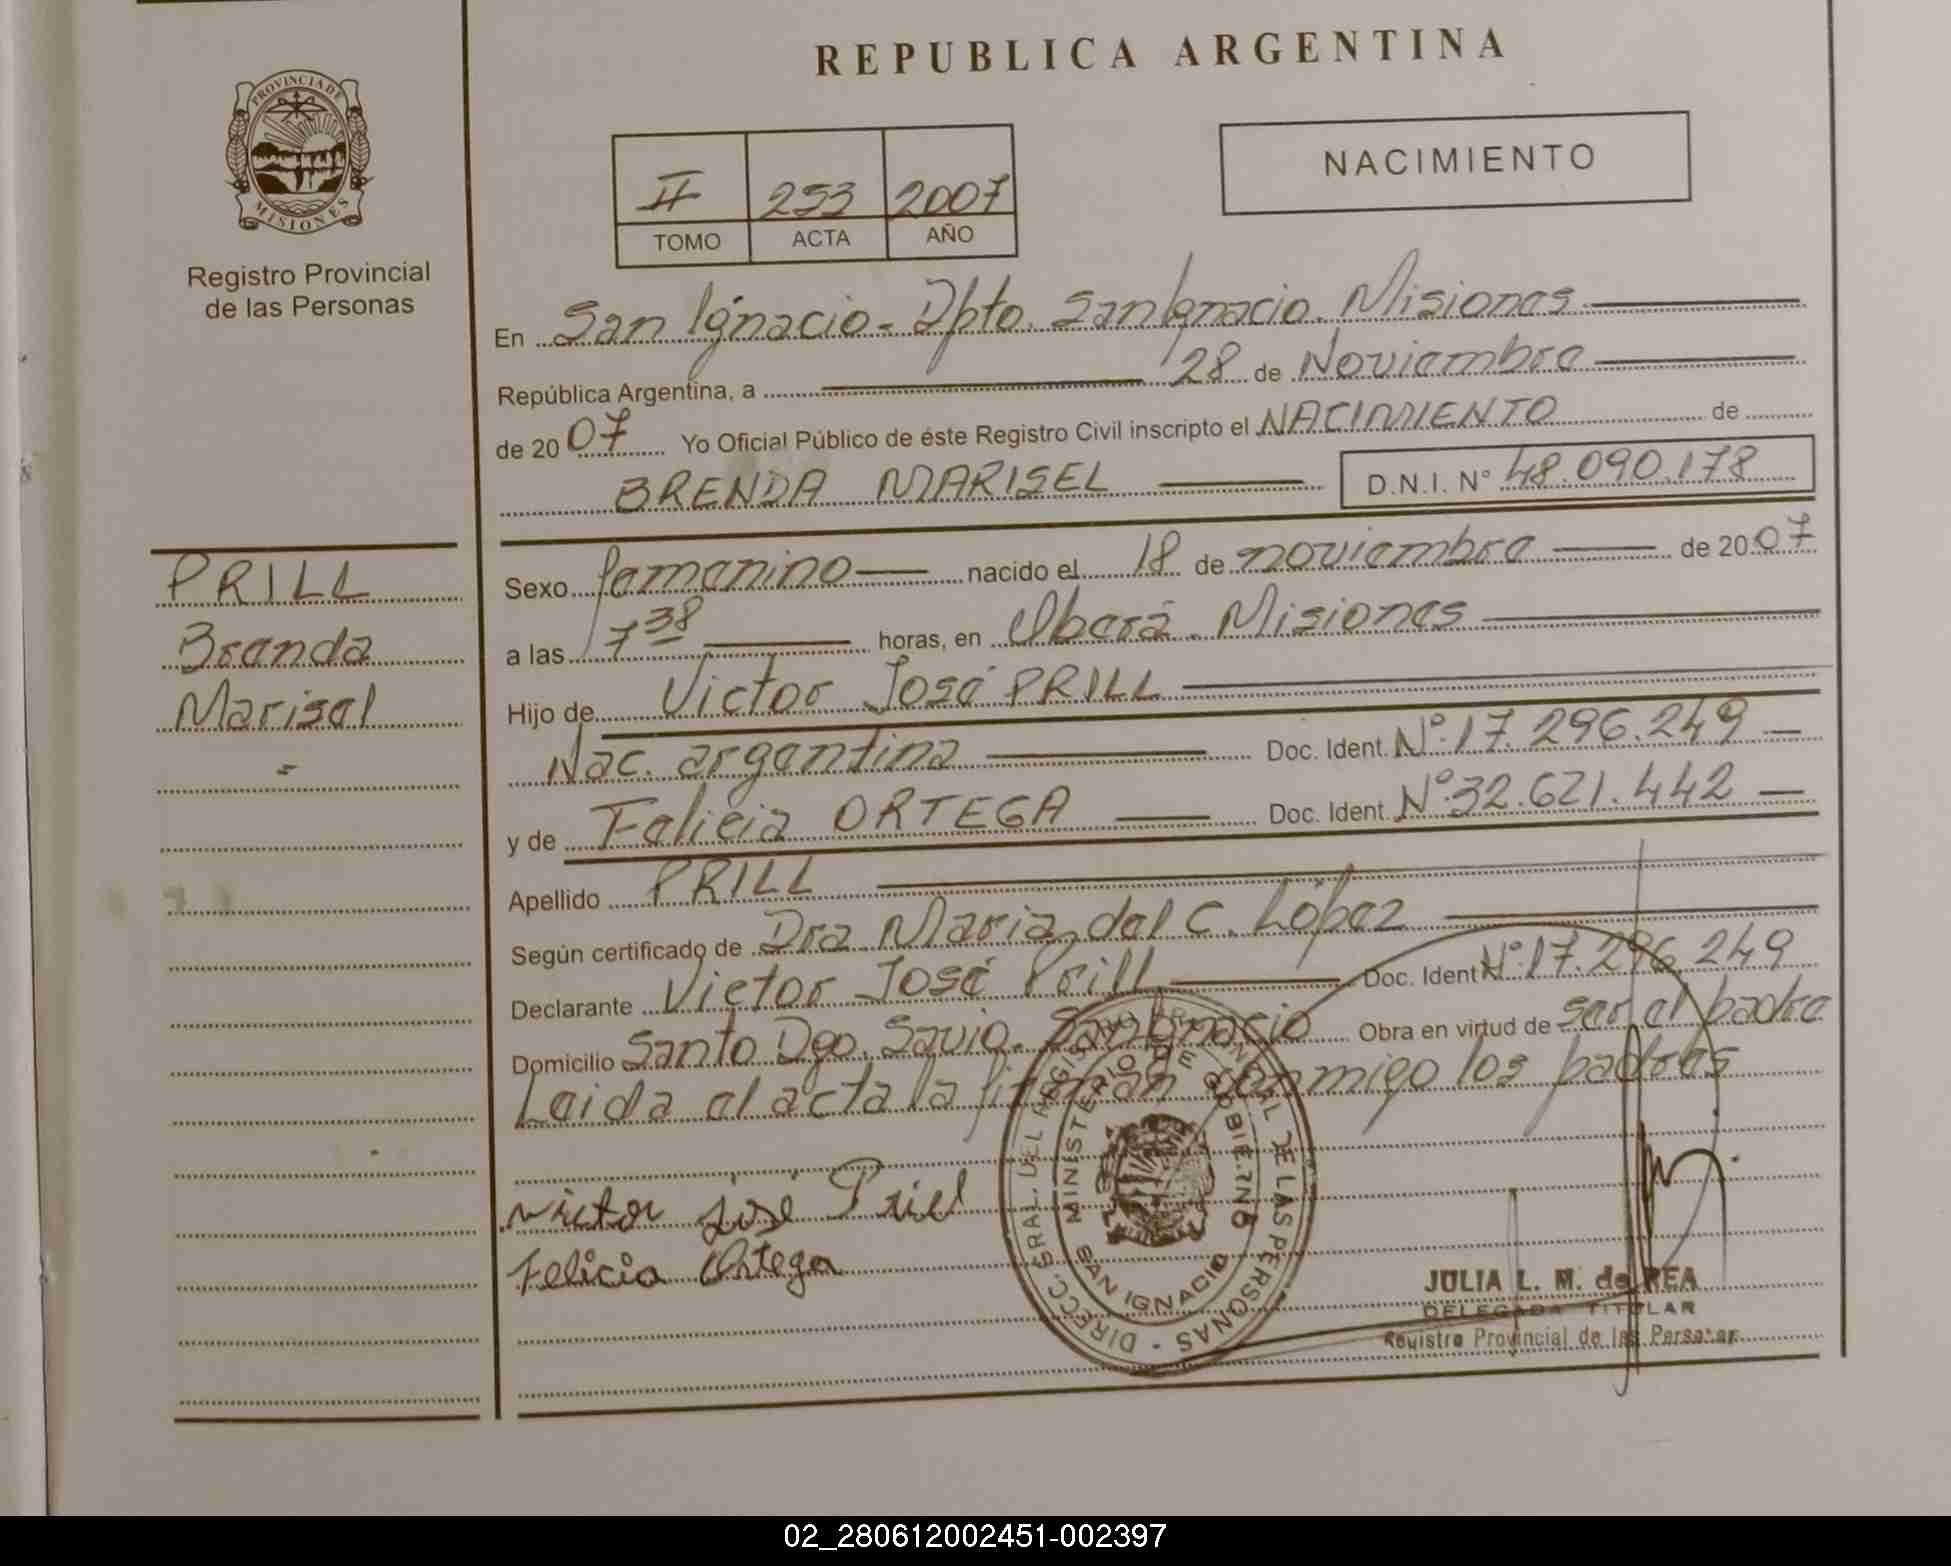 REPUBLICA ARGENTINA
PROVINCIA DE
MISIONES
Registro Provincial
de las Personas
II 253 2007
TOMO ACTA AÑO
NACIMIENTO
En San Ignacio - Dpto. San Ignacio. Misiones
República Argentina, a 28 de Noviembre
de 2007 Yo Oficial Público de éste Registro Civil inscripto el NACIMIENTO de
BRENDA MARISEL D.N.I. N° 48.090.178
PRILL
Brenda
Marisel
Sexo femenino nacido el 18 de noviembre de 2007
a las 7 38 horas, en Oberá. Misiones
Hijo de Victor José PRILL
Nac. argentina Doc. Ident. N° 17.296.249
y de Felicia ORTEGA Doc. Ident. N° 32.621.442
Apellido PRILL
Según certificado de Dra María del C. López
Declarante Victor José Prill Doc. Ident N° 17.296.249
Domicilio Santo Dgo. Savio. San Ignacio Obra en virtud de ser el padre
Leida el acta la firman conmigo los padres
Victor José Priel
Felicia Ortega
DIRECC. GRAL. DEL REGISTRO PROVINCIAL DE LAS PERSONAS -
MINISTERIO DE GOBIERNO
SAN IGNACIO
JULIA L. M. de REA
DELEGADA TITULAR
Registro Provincial de las Personas
02_280612002451-002397